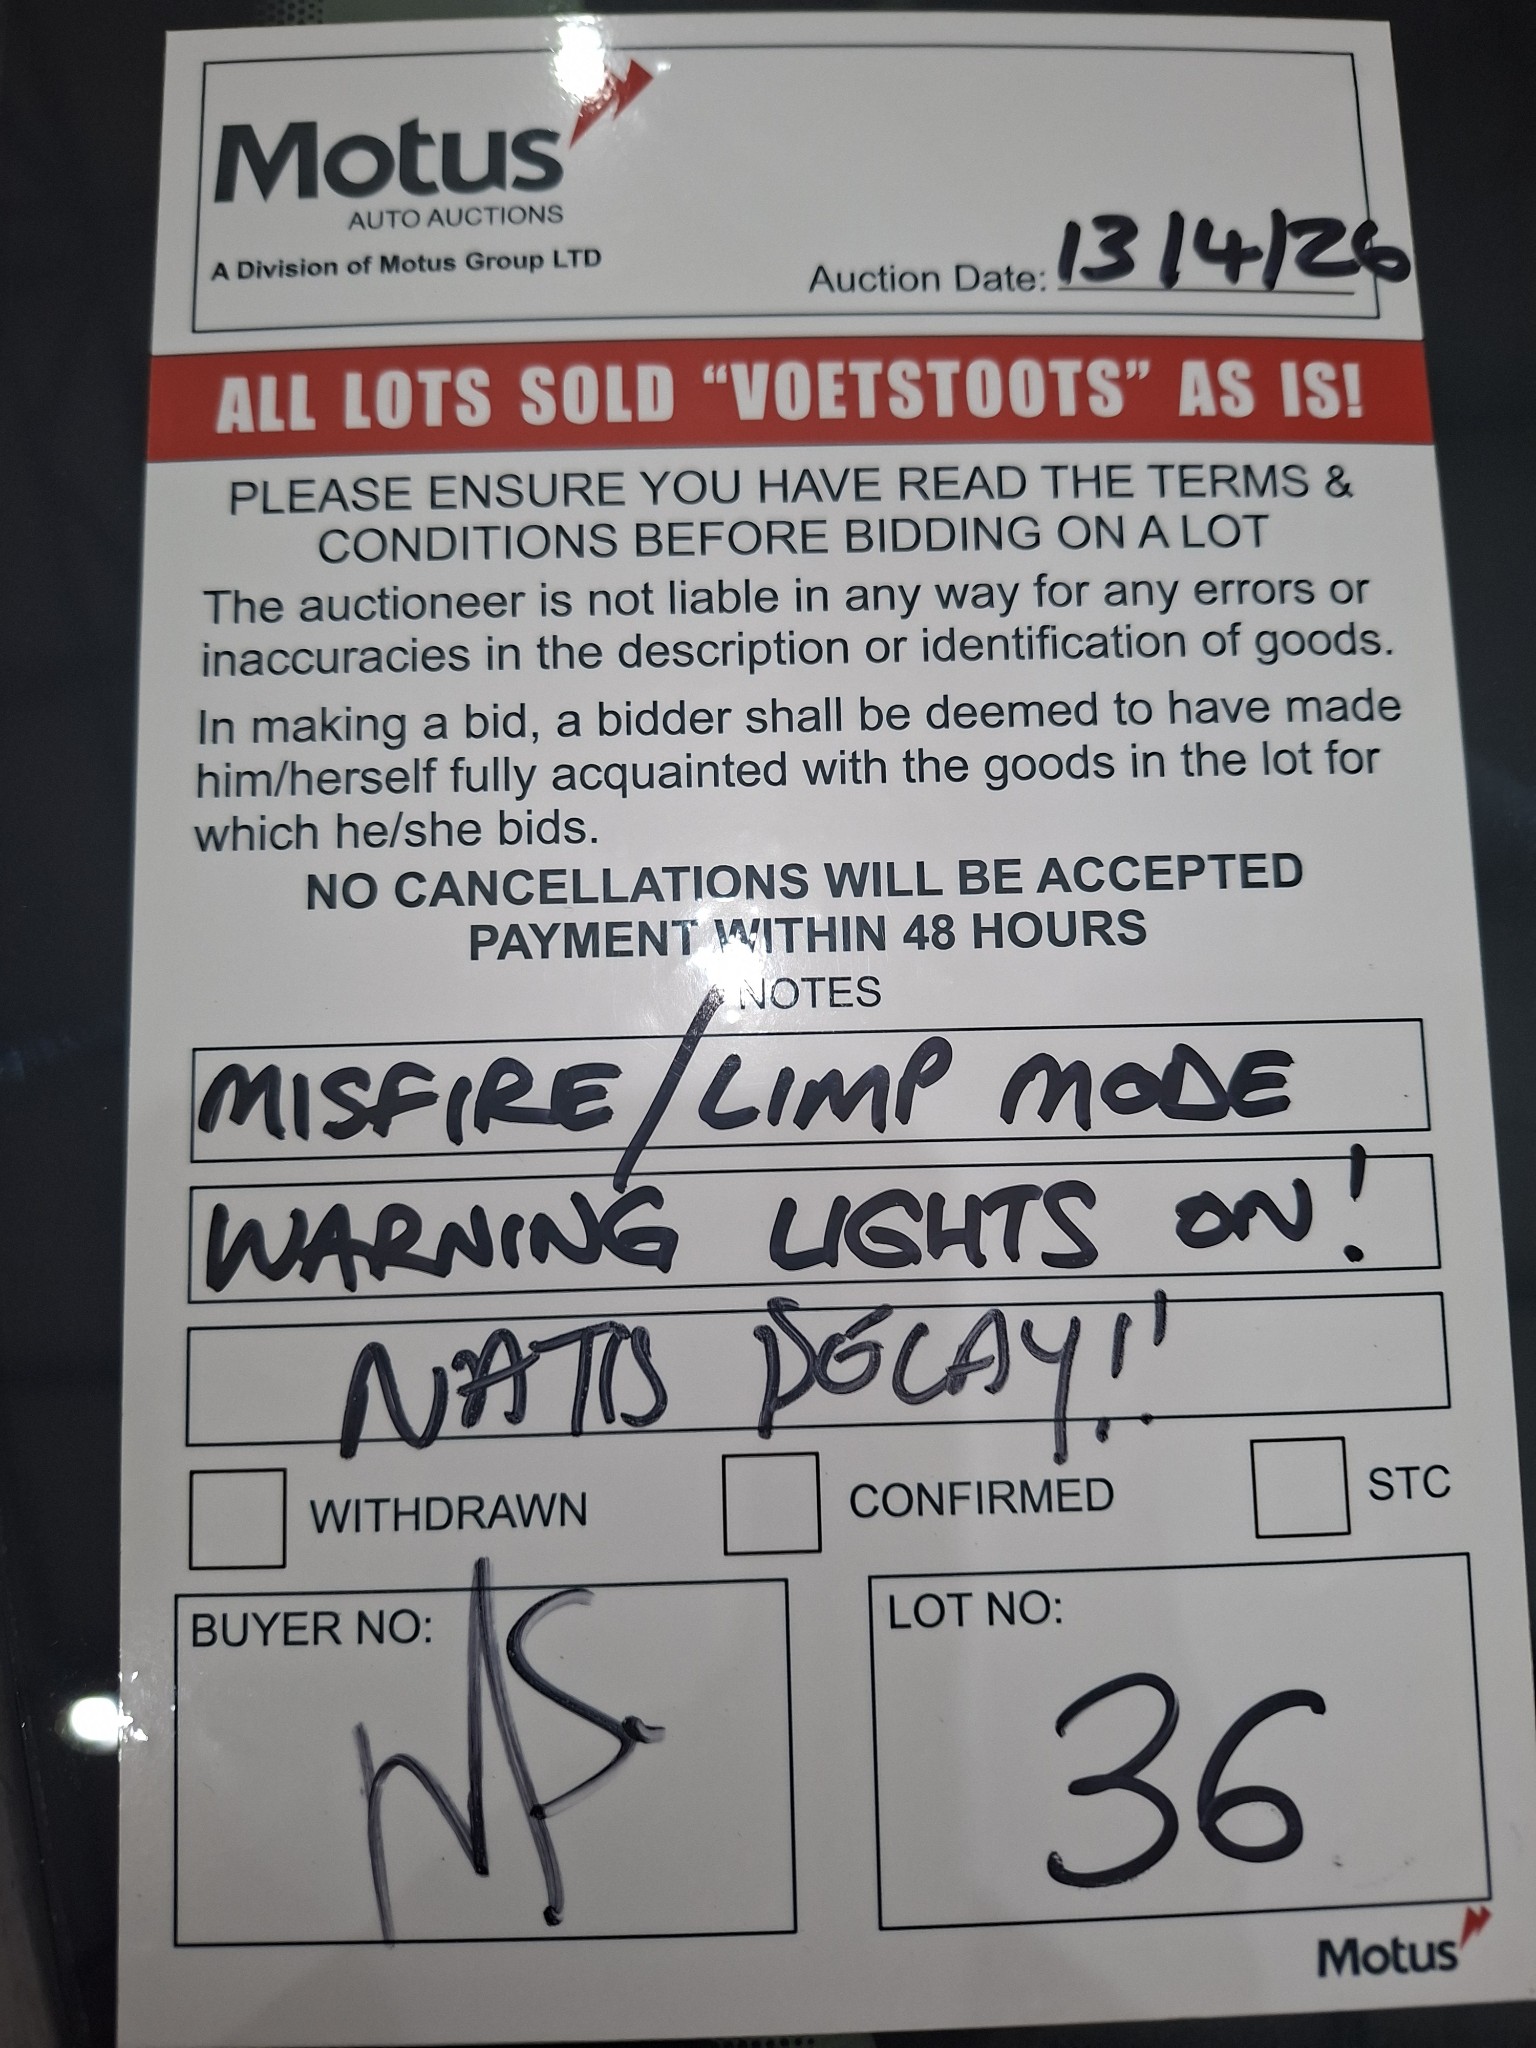 Motus
AUTO AUCTIONS
A Division of Motus Group LTD
Auction Date: 13/4/26
ALL LOTS SOLD “VOETSTOOTS” AS IS!
PLEASE ENSURE YOU HAVE READ THE TERMS &
CONDITIONS BEFORE BIDDING ON A LOT
The auctioneer is not liable in any way for any errors or
inaccuracies in the description or identification of goods.
In making a bid, a bidder shall be deemed to have made
him/herself fully acquainted with the goods in the lot for
which he/she bids.
NO CANCELLATIONS WILL BE ACCEPTED
PAYMENT WITHIN 48 HOURS
NOTES
MISFIRE/LIMP MODE
WARNING LIGHTS ON!
NATIS DELAY!!
WITHDRAWN CONFIRMED STC
BUYER NO: LOT NO:
36
Motus